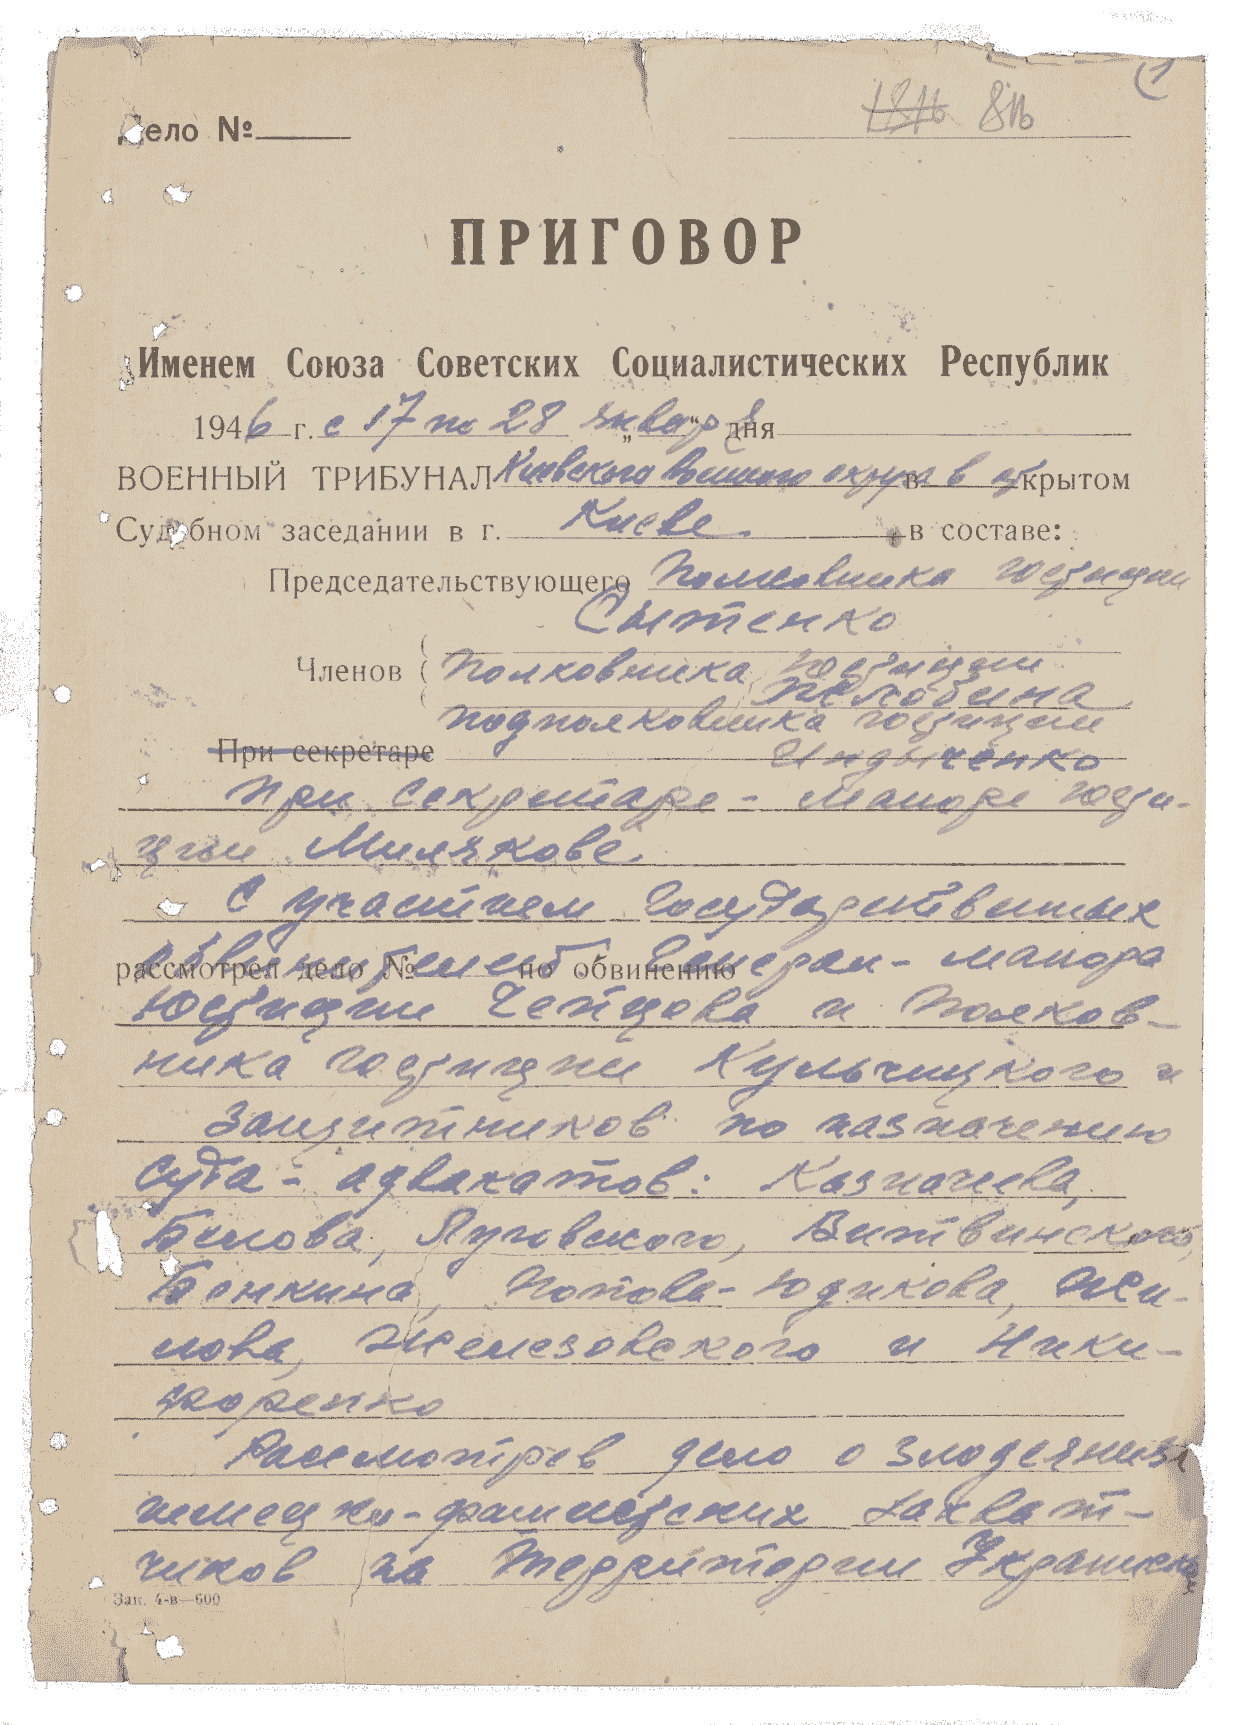 1
181б 81б
Дело №
ПРИГОВОР
Именем Союза Советских Социалистических Республик
1946 г. с 17 по 28 января дня
ВОЕННЫЙ ТРИБУНАЛ Киевского Военного округа в в открытом
Судебном заседании в г. Киеве в составе:
Председательствующего Полковника юстиции
Сытенко
Членов Полковника юстиции
Желобина
подполковника юстиции
При секретаре Индыченко
При секретаре - майоре юсти-
ции Милякове
С участием Государственных
обвинителей Генерал-майора
рассмотрел дело № по обвинению
юстиции Чепцова и Полков-
ника юстиции Кульчицкого и
Защитников по назначению
Суда - адвокатов: Казначеева,
Белова, Луговского, Витвинского,
Бонкина, Попова-Юдикова,
лова, Железовского и Ники-
форенко
Рассмотрев дело о злодеяниях
немецко-фашистских захват-
чиков на территории
Зак. 4-в—600